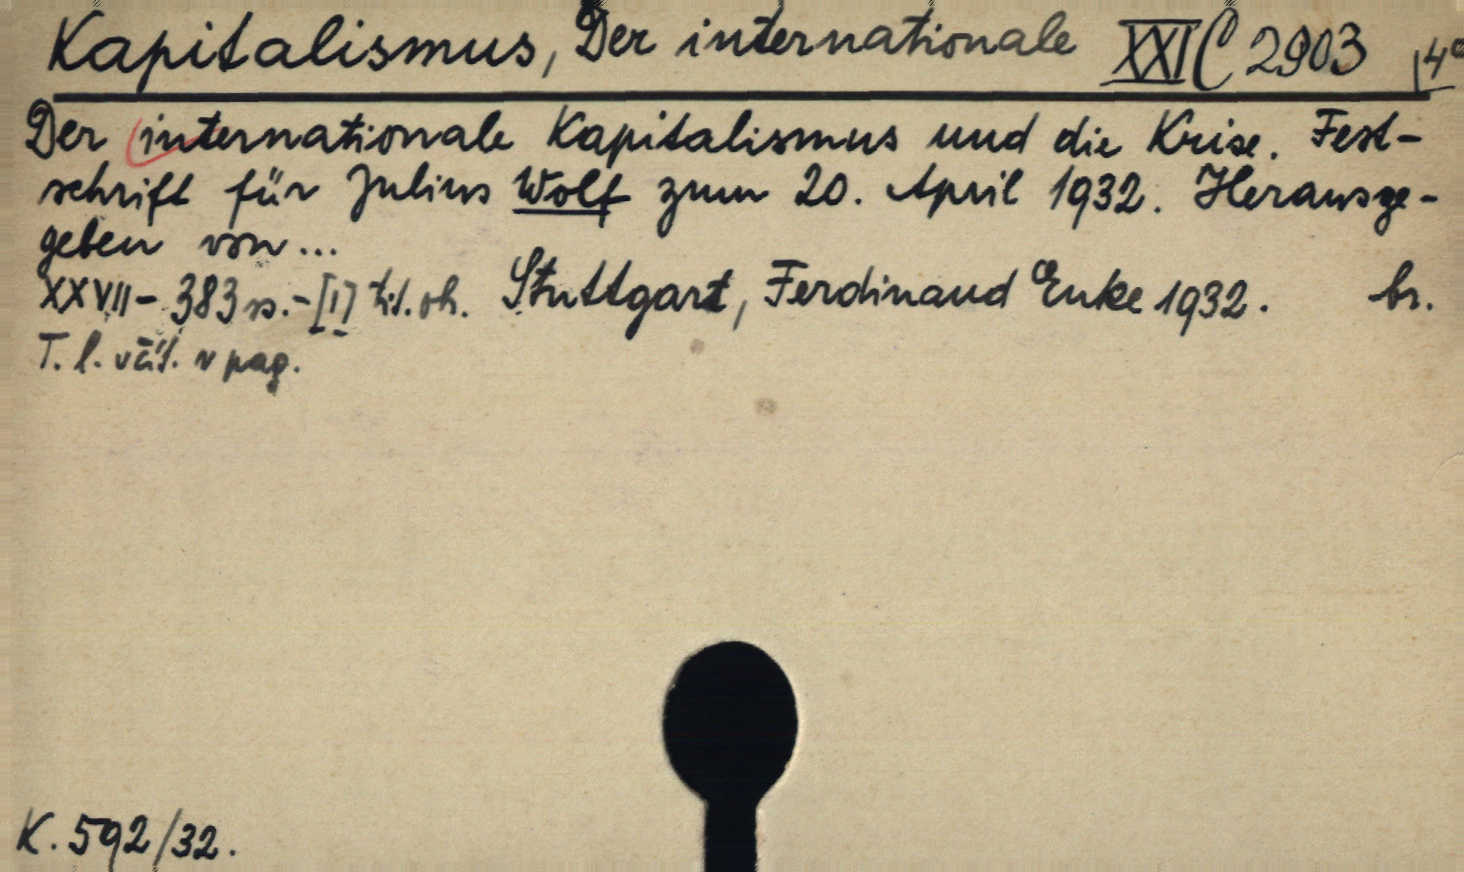 Kapitalismus, Der internationale XXI C 2903 4°
Der internationale Kapitalismus und die Krise. Fest-
schrift für Julius Wolf zum 20. April 1932. Herausge-
geben von...
XXVII- 383 ss.-[I] tit. ob. Stuttgart, Ferdinand Enke 1932. br.
T. l. včít. v pag.
K. 592/32.